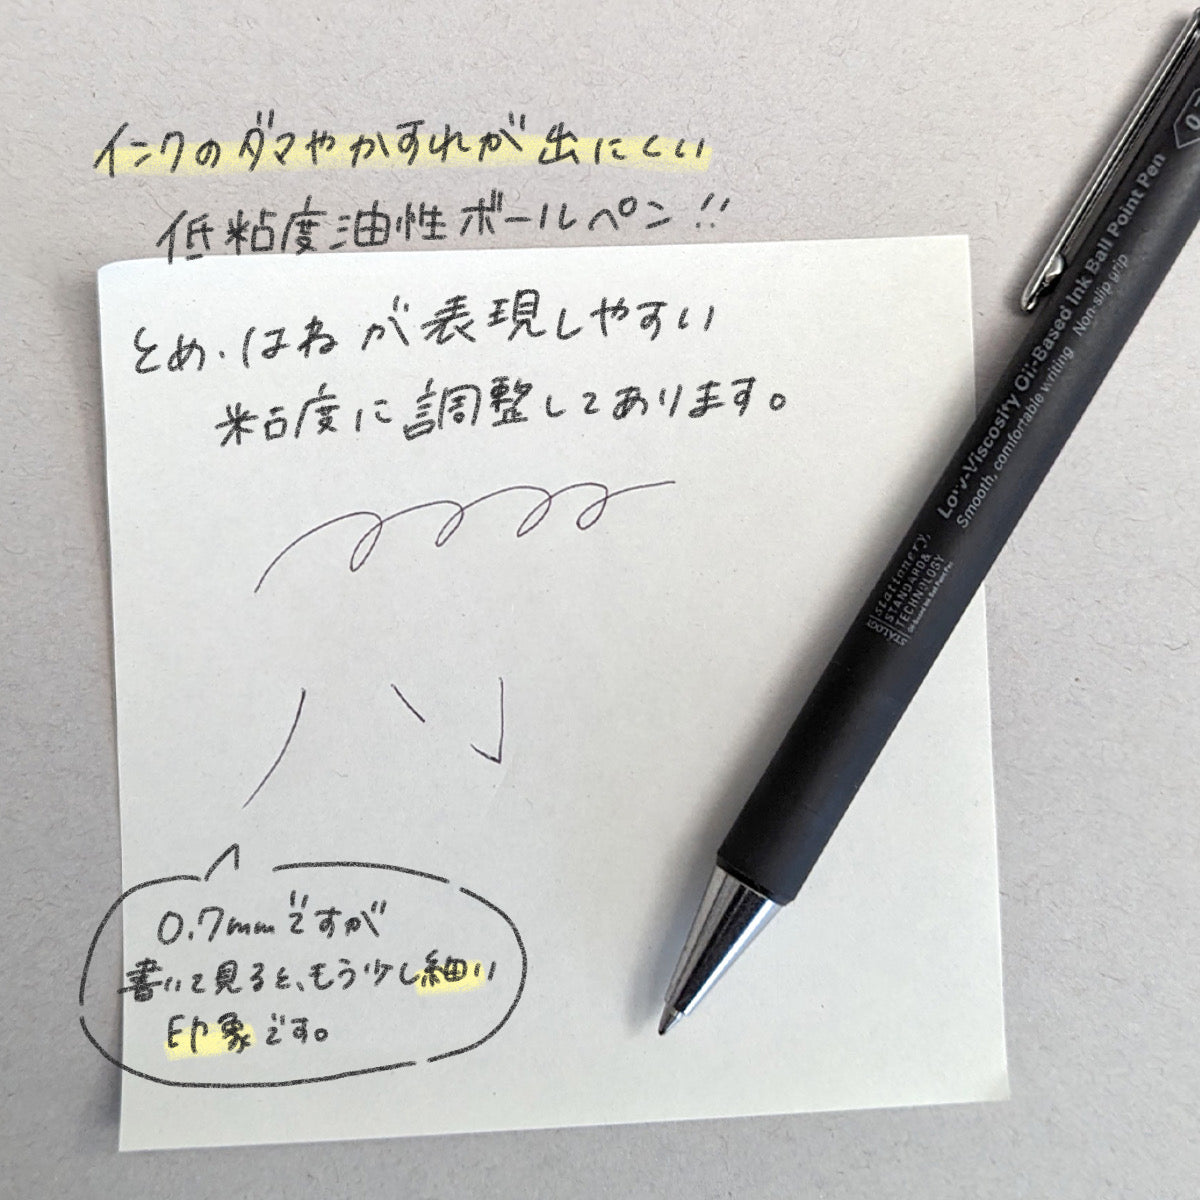 インクのダマやかすれが出にくい
低粘度油性ボールペン!!
とめ・はねが表現しやすい
粘度に調整してあります。
0.7mmですが
書いて見ると、もう少し細い
印象です。
Low-Viscosity Oil-Based Ink Ball Point Pen
Smooth, comfortable writing Non-slip grip
stationery,
STANDARD&
TECHNOLOGY
STALOGY
Oil-Based Ink Ball Point Pen